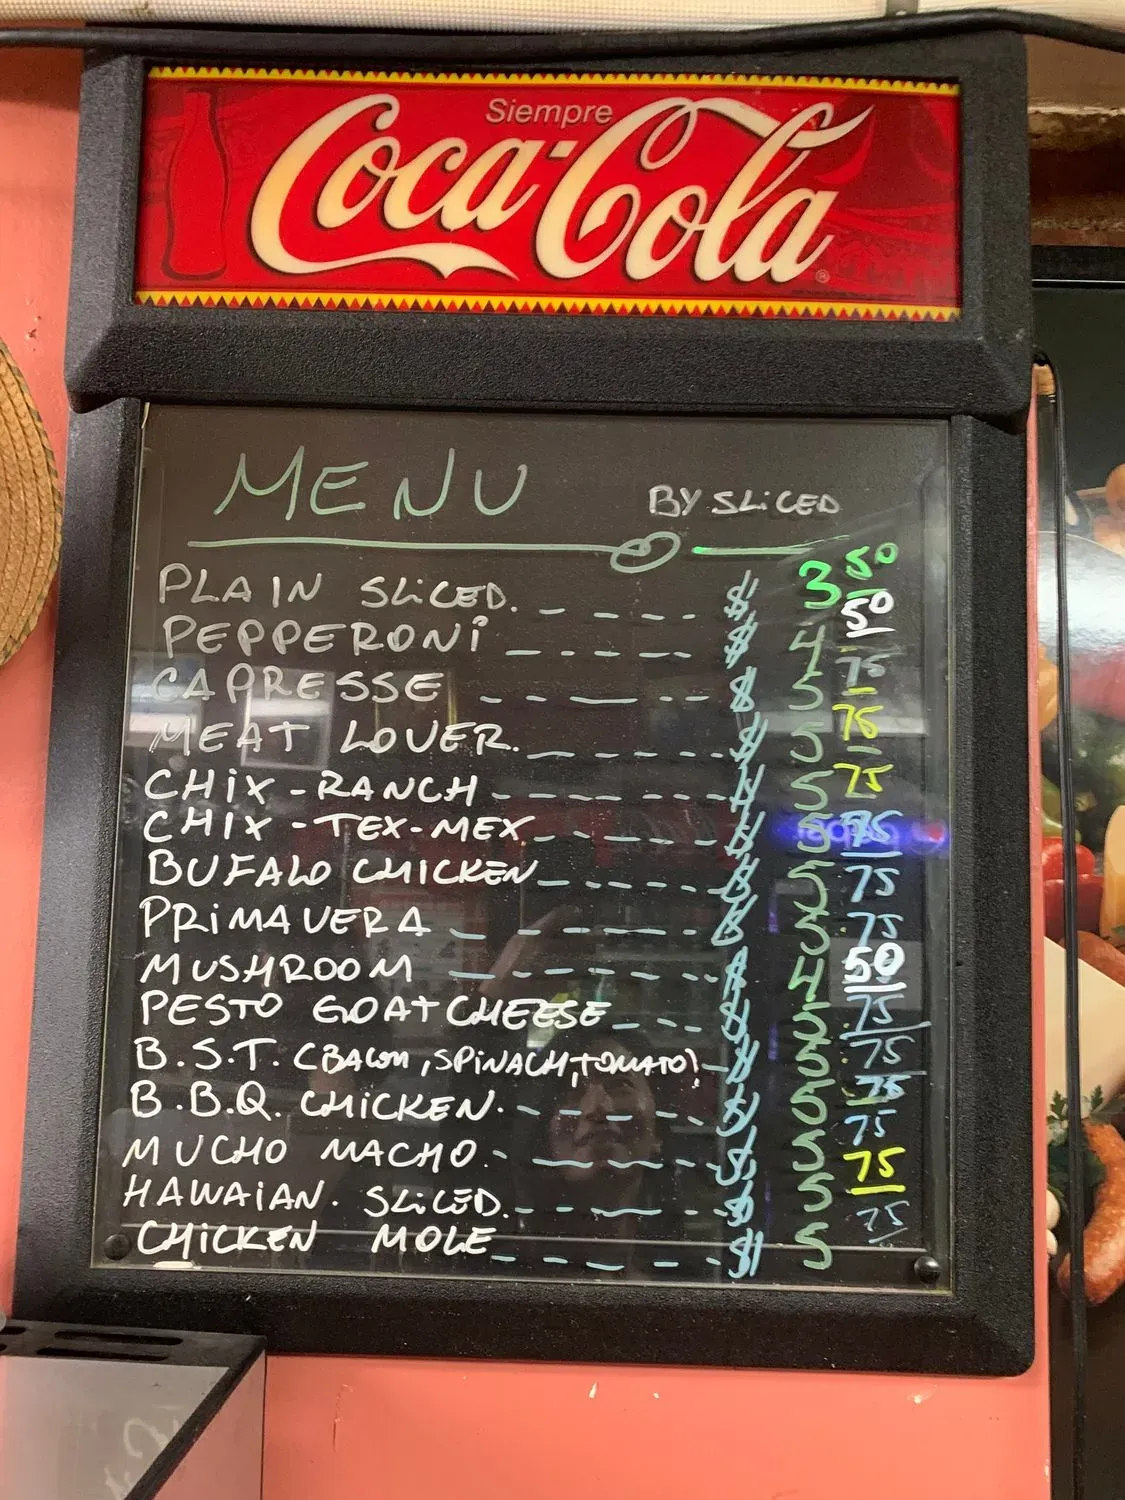 Siempre
Coca-Cola
MENU BY SLiCED
PLAIN SLiCED. $ 3 50
PEPPERONi $ 4 50
CAPRESSE $ 5 75
MEAT LOVER. $ 5 75
CHiX-RANCH $ 5 75
CHiX-TEX-MEX $ 5 75
BUFALO CHICKEN $ 5 75
PRiMAVERA $ 5 75
MUSHROOM $ 4 50
PESTO GOAT CHEESE $ 5 75
B.S.T. (BACON, SPiNACH, TOMATO) $ 5 75
B.B.Q. CHiCKEN. $ 5 75
MUCHO MACHO. $ 5 75
HAWAIAN. SLiCED. $ 5 75
CHiCKEN MOLE $ 5 75